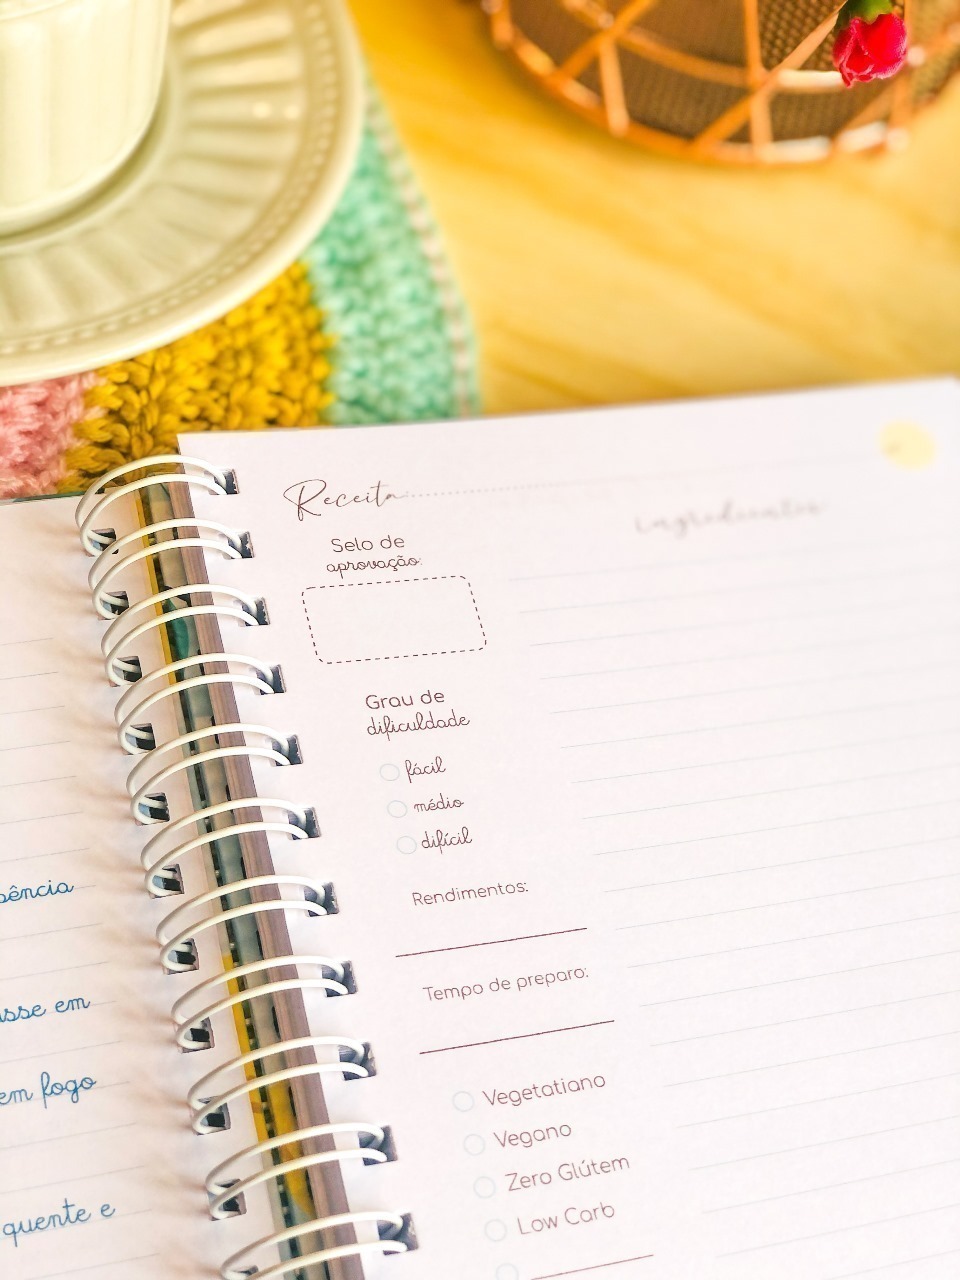 ência
sse em
em fogo
quente e
Receita:
Ingredientes
Selo de
aprovação:
Grau de
dificuldade
fácil
médio
difícil
Rendimentos:
Tempo de preparo:
Vegetatiano
Vegano
Zero Glútem
Low Carb